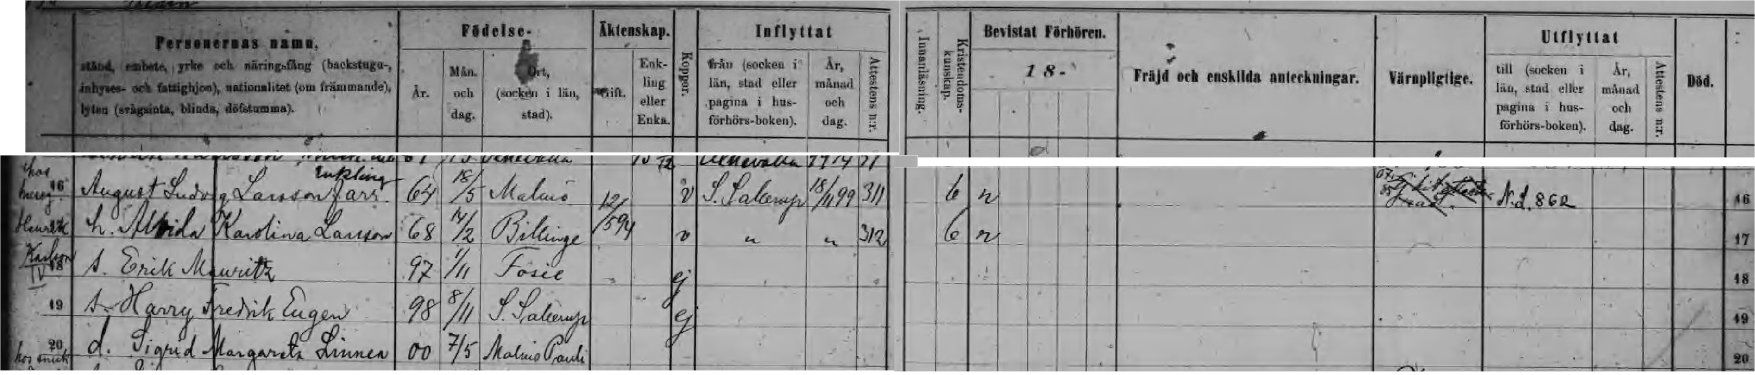 Personernas namn,
stånd, embete, yrke och näringsfång (backstugu-,
inhyses- och fattighjon), nationalitet (om främmande),
lyten (svagsinta, blinda, döfstumma).
Födelse-
År.
Mån. och dag.
Ort, (socken i län, stad).
Äktenskap.
Gift.
Enk- ling eller Enka.
Koppor.
Inflyttat
från (socken i län, stad eller pagina i hus- förhörs-boken).
År, månad och dag.
Attestens n:r.
Innanläsning.
Kristendoms- kunskap.
Bevistat Förhören.
18-
Fräjd och enskilda anteckningar.
Värnpligtige.
Utflyttat
till (socken i län, stad eller pagina i hus- förhörs-boken).
År, månad och dag.
Attestens n:r.
Död.
16 August Ludvig Larsson 64 18/5 Malmö 12/5 94 v S. Sallerup 18/11 99 311 b n N.L. 862 16
h. Alvida Karolina Larsson 68 14/2 Billinge v " " 312 b n 17
18 s. Erik Mauritz 97 1/11 Fosie ej 18
19 s. Harry Fredrik Eugen 98 8/11 S. Sallerup ej 19
20 d. Sigrid Margareta Linnea 00 7/5 Malmö Pauli 20